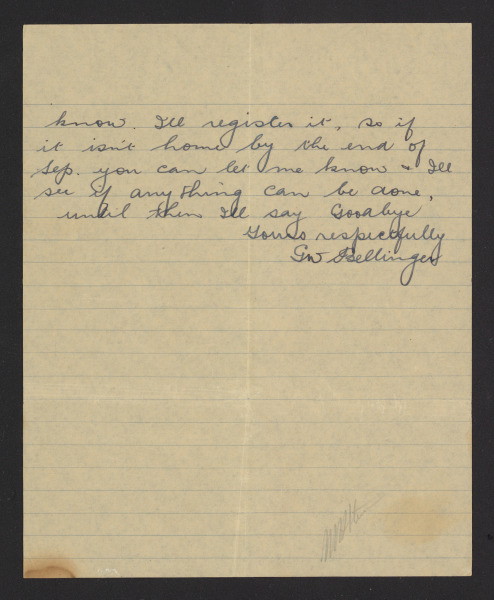 know. I'll register it, so if
it isn't home by the end of
Sep. you can let me know & I'll
see if anything can be done,
until then I'll say Goodbye
Yours respectfully
GW Bellinger